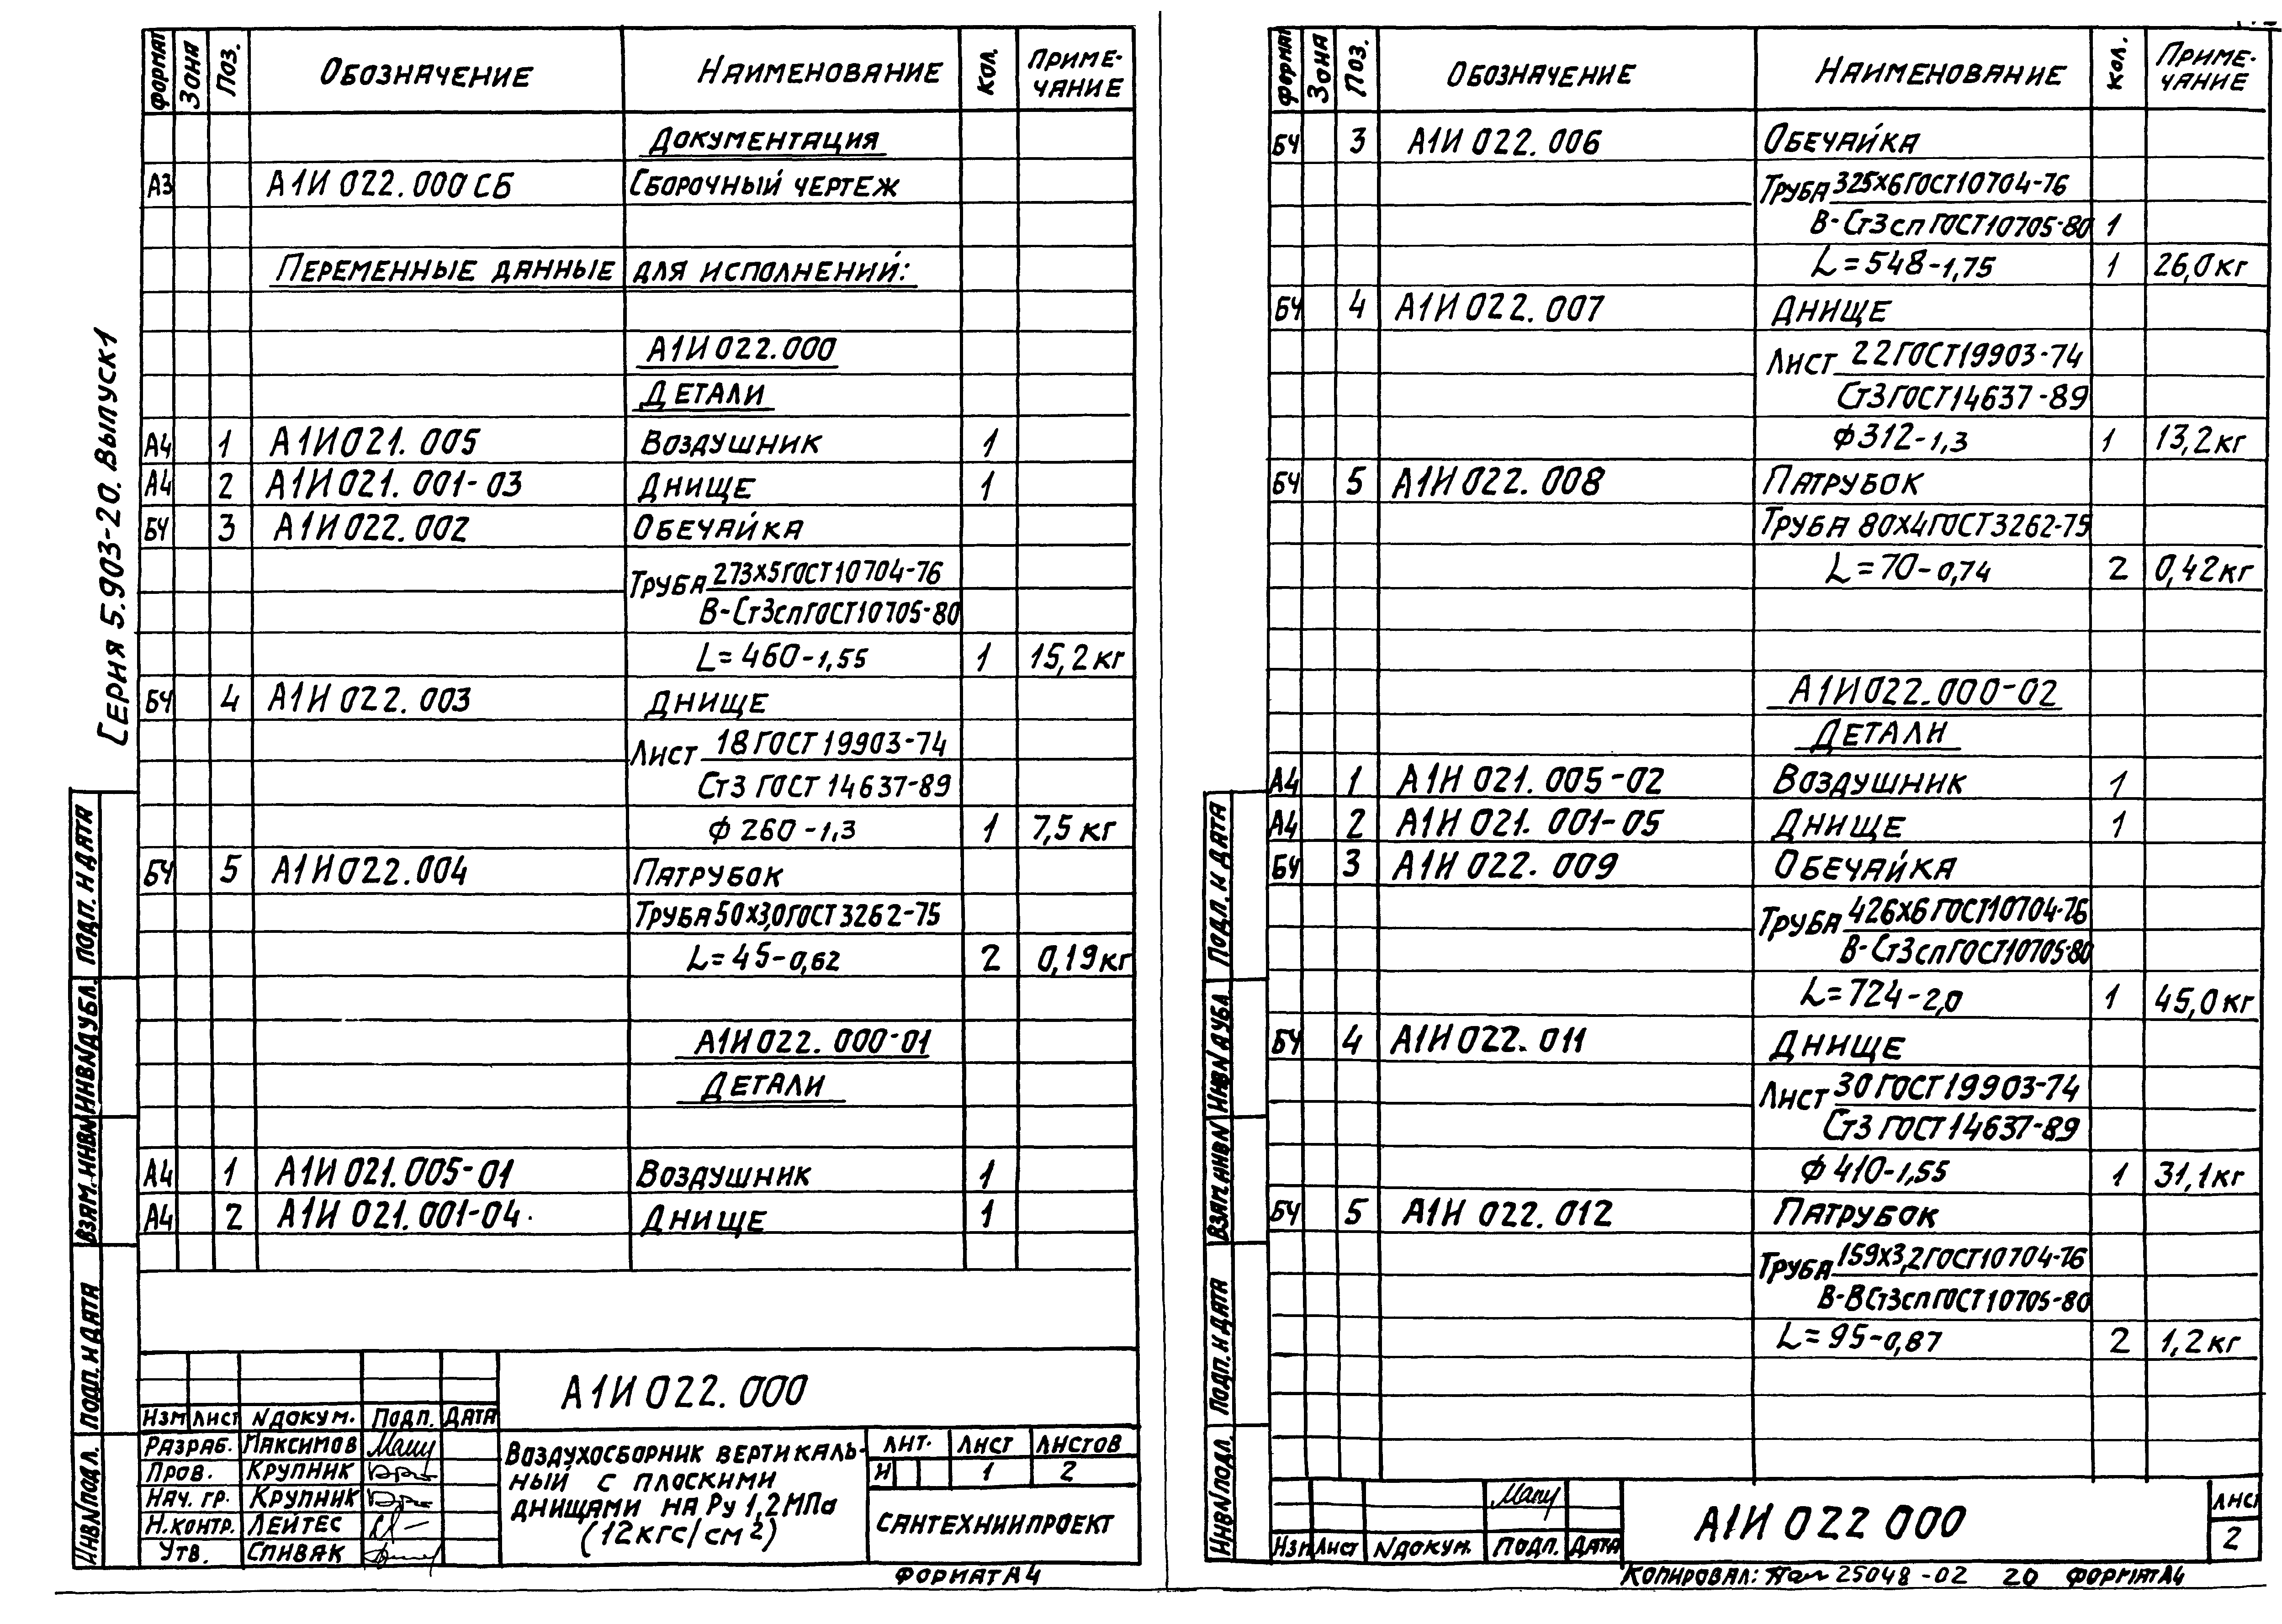 Серия 5.903-20. Выпуск1
Формат Зона Поз. Обозначение Наименование Кол. Приме-
чание
Документация
А3 А1И 022.000 СБ Сборочный чертеж
Переменные данные для исполнений:
А1И 022.000
Детали
А4 1 А1И 021.005 Воздушник 1
А4 2 А1И 021.001-03 Днище 1
БЧ 3 А1И 022.002 Обечайка
Труба 273х5 ГОСТ 10704-76
В-Ст3сп ГОСТ 10705-80
L=460-1,55 1 15,2 кг
БЧ 4 А1И 022.003 Днище
Лист 18 ГОСТ 19903-74
Ст3 ГОСТ 14637-89
ф 260-1,3 1 7,5 кг
БЧ 5 А1И 022.004 Патрубок
Труба 50х3,0 ГОСТ 3262-75
L=45-0,62 2 0,19 кг
А1И 022.000-01
Детали
А4 1 А1И 021.005-01 Воздушник 1
А4 2 А1И 021.001-04 Днище 1
Подп. и дата
Инв N дубл.
Взам. инв N
Подп. и дата
Инв N подл.
А1И 022.000
Изм Лист N докум. Подп. Дата
Разраб. Максимов
Пров. Крупник
Нач. гр. Крупник
Н.контр. Лейтес
Утв. Спивак
Воздухосборник вертикаль-
ный с плоскими
днищами на Ру 1,2 МПа
(12 кгс/см²)
Лит. Лист Листов
И 1 2
Сантехниипроект
Формат А4
Формат Зона Поз. Обозначение Наименование Кол. Приме-
чание
БЧ 3 А1И 022.006 Обечайка
Труба 325х6 ГОСТ 10704-76
В-Ст3сп ГОСТ 10705-80 1
L=548-1,75 1 26,0 кг
БЧ 4 А1И 022.007 Днище
Лист 22 ГОСТ 19903-74
Ст3 ГОСТ 14637-89
ф 312-1,3 1 13,2 кг
БЧ 5 А1И 022.008 Патрубок
Труба 80х4 ГОСТ 3262-75
L=70-0,74 2 0,42 кг
А1И 022.000-02
Детали
А4 1 А1И 021.005-02 Воздушник 1
А4 2 А1И 021.001-05 Днище 1
БЧ 3 А1И 022.009 Обечайка
Труба 426х6 ГОСТ 10704-76
В-Ст3сп ГОСТ 10705-80
L=724-2,0 1 45,0 кг
БЧ 4 А1И 022.011 Днище
Лист 30 ГОСТ 19903-74
Ст3 ГОСТ 14637-89
ф 410-1,55 1 31,1 кг
БЧ 5 А1И 022.012 Патрубок
Труба 159х3,2 ГОСТ 10704-76
В-ВСт3сп ГОСТ 10705-80
L=95-0,87 2 1,2 кг
Подп. и дата
Инв N дубл.
Взам. инв N
Подп. и дата
Инв N подл.
Изм Лист N докум. Подп. Дата
А1И 022 000
Лист
2
Копировал: 25048-02 20 Формат А4